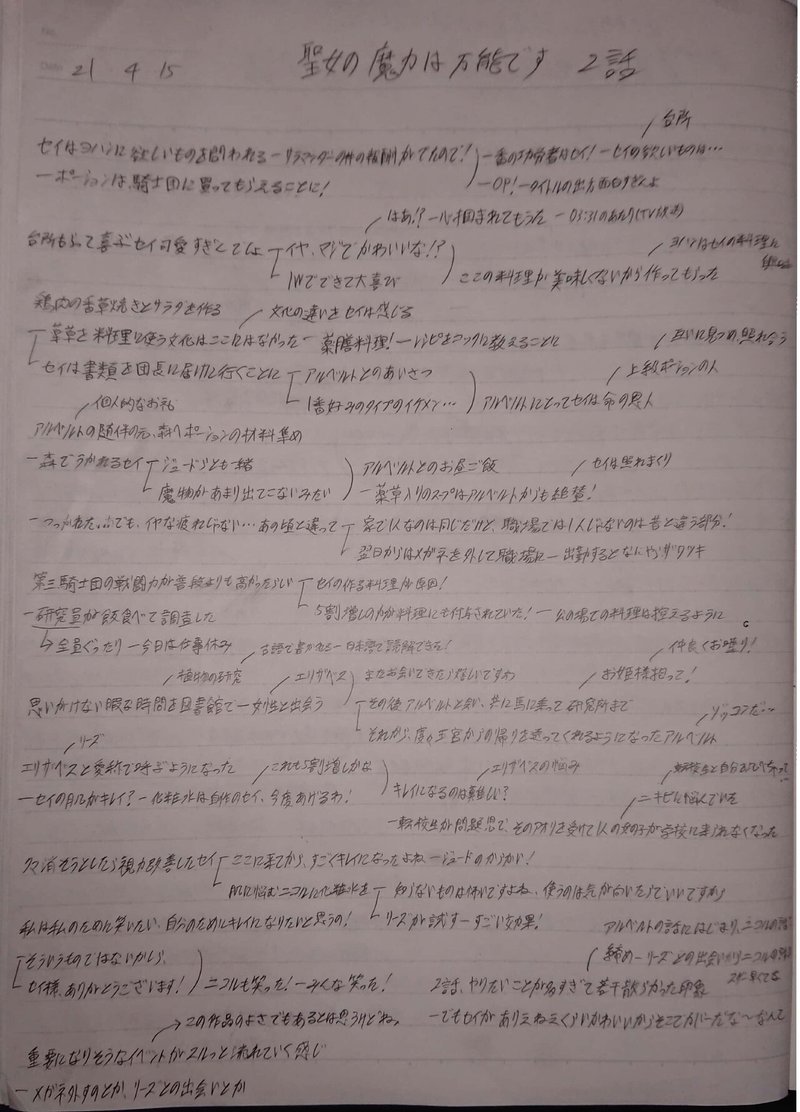 21 4 15 聖女の魔力は万能です 2話
台所
セイはヨハンに欲しいものを問われる―サラマンダーの件の報酬がでたので! 一番の功労者はセイ!―セイの欲しいものは…
―ポーションは、騎士団に買ってもらえることに! ―OP!―タイトルの出方面白すぎんよ
はあ!?―心掴まれてもうた―03:31のあたり(TV放送)
台所もらって喜ぶセイ可愛すぎてしんよ ―イヤ、マジでかわいいな!? ヨハンはセイの料理に
1Wでできて大喜び ここの料理が美味しくないから作ってもらった
鶏肉の香草焼きとサラダを作る 文化の違いをセイは感じる
薬草を料理に使う文化はここにはなかった―薬膳料理!―レシピをコックに教えることに 互いに見つめ、照れ合う
セイは書類を団長に届けに行くことに アルベルトとのあいさつ 上級ポーションの人
個人的なお礼 1番好みのタイプのイケメン… アルベルトにとってセイは命の恩人
アルベルトの随伴の元、森へポーションの材料集め
―森でうかれるセイ ジュードらとも一緒 アルベルトとのお昼ご飯 セイは照れまくり
魔物があまり出てこないみたい ―薬草入りのスープはアルベルトからも絶賛!
―つっかれた。でも、イヤな疲れじゃない…あの頃と違って 家で1人なのは同じだけど、職場では1人じゃないのは昔と違う部分!
翌日からはメガネを外して職場に―出勤するとなんやらザワツキ
第三騎士団の戦闘力が普段よりも高かったらしい セイの作る料理が原因!
―研究員が飯食べて調査した 5割増しの力が料理にも付与されていた!―公の場での料理は控えるように
全員ぐったり―今日は仕事休み 古語で書かれる―日本語で読解できた! 仲良くお喋り!
植物の研究 エリザベス またお会いできたら嬉しいですわ お姫様抱っこ!
思いがけない暇な時間を図書館で―女性と出会う その後アルベルトと会い、共に馬に乗って研究所まで ゾッコンだ…
リーズ それから、度々王宮からの帰りを送ってくれるようになったアルベルト
エリザベスと愛称で呼ぶようになった これも5割増しかな エリザベスの悩み 転校生と自分
―セイの肌がキレイ?―化粧水は自作のセイ、今度あげるわ! キレイになるのは難しい? ニキビに悩んでいる
―転校生が問題児で、そのアオリを受けて1人の女の子が学校に来られなくなった
クマ消そうとしたら視力改善したセイ ここに来てから、すごくキレイになったよね―ジュードのからかい!
肌に悩むニコルに化粧水を 知らないものは怖いですよね、使うのは気が向いたらでいいですから
私は私のために笑いたい、自分のためにキレイになりたいと思うの! リーズが試す―すごい効果! アルベルトの話にはじまり、ニコルの
そういうものではないかしら、 締め―リーズとの出会いからニコルの
セイ様、ありがとうございます! ニコルも笑った!―みんな笑った! 2話、やりたいことが多すぎて若干散らかった印象
この作品のよさでもあるとは思うけどね。 ―でもセイがありえねえくらいかわいいからそこでカバーだな~なんて
重要になりそうなイベントがヌルっと流れていく感じ
―メガネ外すのとか、リーズとの出会いとか